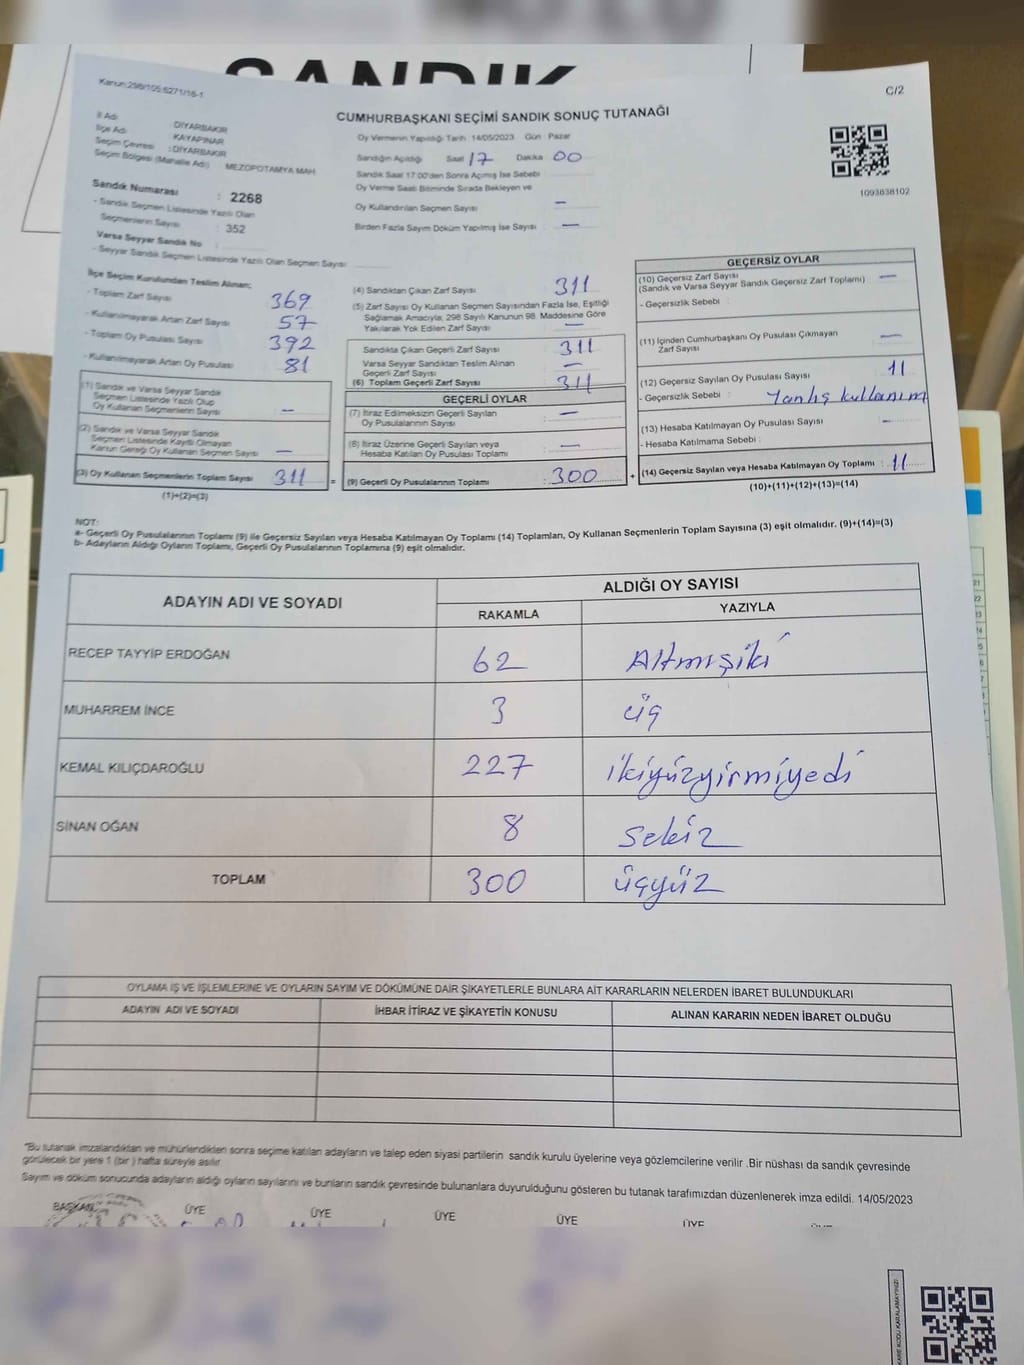 SANDIK
Kanun:298/105,6271/16-1
C/2
CUMHURBAŞKANI SEÇİMİ SANDIK SONUÇ TUTANAĞI
İl Adı DİYARBAKIR
İlçe Adı KAYAPINAR
Seçim Çevresi : DİYARBAKIR
Seçim Bölgesi (Mahalle Adı) MEZOPOTAMYA MAH.
Sandık Numarası : 2268
- Sandık Seçmen Listesinde Yazılı Olan
Seçmenlerin Sayısı : 352
Varsa Seyyar Sandık No :
- Seyyar Sandık Seçmen Listesinde Yazılı Olan Seçmen Sayısı:
Oy Vermenin Yapıldığı Tarih 14/05/2023 Gün Pazar
Sandığın Açıldığı Saat 17 Dakika 00
Sandık Saat 17:00'den Sonra Açılmış İse Sebebi
Oy Verme Saati Bitiminde Sırada Bekleyen ve
Oy Kullandırılan Seçmen Sayısı —
Birden Fazla Sayım Döküm Yapılmış İse Sayısı —
1093838102
İlçe Seçim Kurulundan Teslim Alınan;
- Toplam Zarf Sayısı 369
- Kullanılmayarak Artan Zarf Sayısı 57
- Toplam Oy Pusulası Sayısı 392
- Kullanılmayarak Artan Oy Pusulası 81
(1) Sandık ve Varsa Seyyar Sandık
Seçmen Listesinde Yazılı Olup
Oy Kullanan Seçmenlerin Sayısı : —
(2) Sandık ve Varsa Seyyar Sandık
Seçmen Listesinde Kayıtlı Olmayan
Kanun Gereği Oy Kullanan Seçmen Sayısı —
(3) Oy Kullanan Seçmenlerin Toplam Sayısı 311 =
(1)+(2)=(3)
(4) Sandıktan Çıkan Zarf Sayısı 311
(5) Zarf Sayısı Oy Kullanan Seçmen Sayısından Fazla İse, Eşitliği
Sağlamak Amacıyla; 298 Sayılı Kanunun 98. Maddesine Göre
Yakılarak Yok Edilen Zarf Sayısı —
Sandıkta Çıkan Geçerli Zarf Sayısı 311
Varsa Seyyar Sandıktan Teslim Alınan
Geçerli Zarf Sayısı —
(6) Toplam Geçerli Zarf Sayısı 311
GEÇERLİ OYLAR
(7) İtiraz Edilmeksizin Geçerli Sayılan
Oy Pusulalarının Sayısı —
(8) İtiraz Üzerine Geçerli Sayılan veya
Hesaba Katılan Oy Pusulası Toplamı —
(9) Geçerli Oy Pusulalarının Toplamı : 300 +
GEÇERSİZ OYLAR
(10) Geçersiz Zarf Sayısı
(Sandık ve Varsa Seyyar Sandık Geçersiz Zarf Toplamı) —
- Geçersizlik Sebebi :
(11) İçinden Cumhurbaşkanı Oy Pusulası Çıkmayan
Zarf Sayısı —
(12) Geçersiz Sayılan Oy Pusulası Sayısı 11
- Geçersizlik Sebebi : Yanlış kullanım
(13) Hesaba Katılmayan Oy Pusulası Sayısı —
- Hesaba Katılmama Sebebi :
(14) Geçersiz Sayılan veya Hesaba Katılmayan Oy Toplamı : 11
(10)+(11)+(12)+(13)=(14)
NOT:
a- Geçerli Oy Pusulalarının Toplamı (9) ile Geçersiz Sayılan veya Hesaba Katılmayan Oy Toplamı (14) Toplamları, Oy Kullanan Seçmenlerin Toplam Sayısına (3) eşit olmalıdır. (9)+(14)=(3)
b- Adayların Aldığı Oyların Toplamı, Geçerli Oy Pusulalarının Toplamına (9) eşit olmalıdır.
ADAYIN ADI VE SOYADI ALDIĞI OY SAYISI
RAKAMLA YAZIYLA
RECEP TAYYİP ERDOĞAN 62 Altmışiki
MUHARREM İNCE 3 üç
KEMAL KILIÇDAROĞLU 227 ikiyüzyirmiyedi
SİNAN OĞAN 8 sekiz
TOPLAM 300 üçyüz
OYLAMA İŞ VE İŞLEMLERİNE VE OYLARIN SAYIM VE DÖKÜMÜNE DAİR ŞİKAYETLERLE BUNLARA AİT KARARLARIN NELERDEN İBARET BULUNDUKLARI
ADAYIN ADI VE SOYADI İHBAR İTİRAZ VE ŞİKAYETİN KONUSU ALINAN KARARIN NEDEN İBARET OLDUĞU
"Bu tutanak imzalandıktan ve mühürlendikten sonra seçime katılan adayların ve talep eden siyasi partilerin sandık kurulu üyelerine veya gözlemcilerine verilir .Bir nüshası da sandık çevresinde
görülecek bir yere 1 (bir ) hafta süreyle asılır.
Sayım ve döküm sonucunda adayların aldığı oyların sayılarını ve bunların sandık çevresinde bulunanlara duyurulduğunu gösteren bu tutanak tarafımızdan düzenlenerek imza edildi. 14/05/2023
BAŞKAN ÜYE ÜYE ÜYE ÜYE ÜYE ÜYE